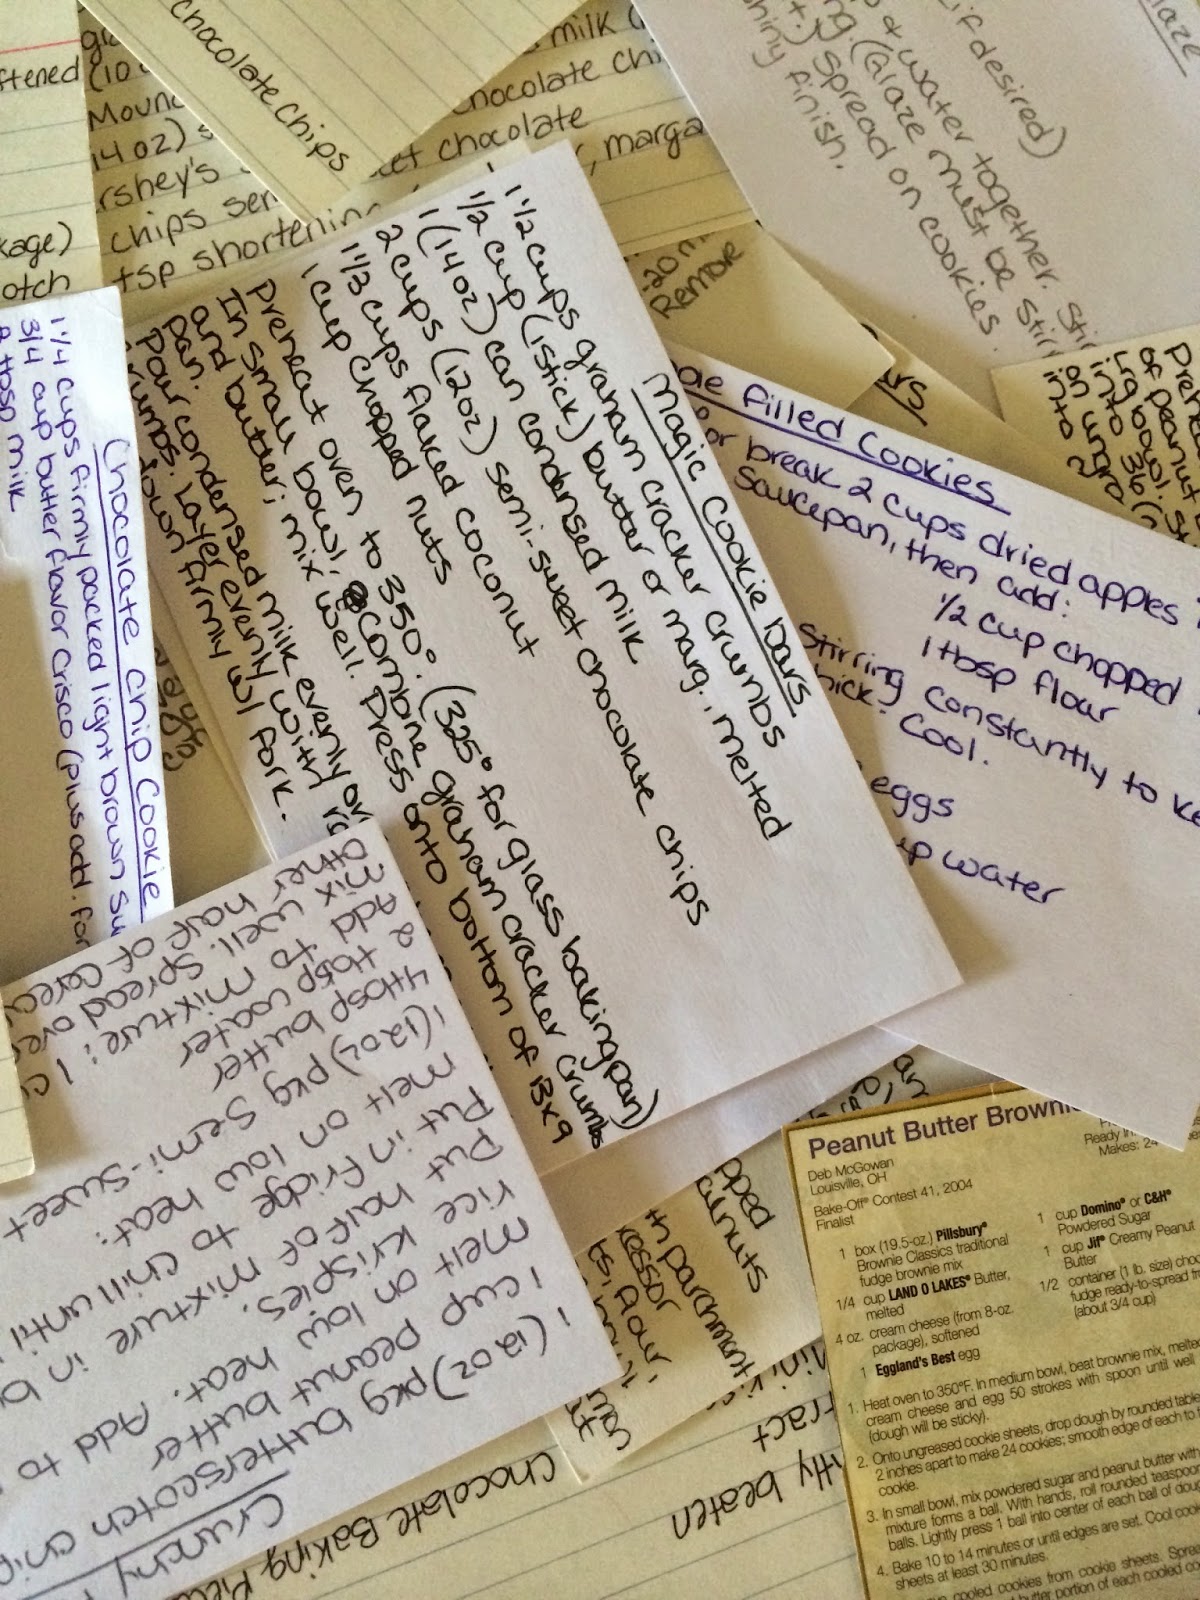 chocolate chips
ftened (10
Mound
14 oz) s
rshey's
kage) chips sem
otch tsp shortening
milk
chocolate chi
et chocolate
, marga
if desired)
& water together. Sti
ng. (Glaze must be stirr
t.) Spread on cookies.
hiny finish.
laze
20 m
Remove
Magic Cookie bars
1 1/2 cups graham cracker crumbs
1/2 cup (1 stick) butter or marg., melted
1 (14 oz) can condensed milk
2 cups (12 oz) semi-sweet chocolate chips
1 1/3 cups flaked coconut
1 cup chopped nuts
Preheat oven to 350°. (325° for glass baking pan)
In small bowl, combine graham cracker crumbs
and butter; mix well. Press onto bottom of 13x9
pan.
Pour condensed milk evenly ov
crumbs. Layer evenly with r
down firmly w/ fork.
Chocolate Chip Cookie
1 1/4 cups firmly packed light brown su
3/4 cup butter flavor Crisco (plus add. for
2 tbsp milk
filled Cookies
or break 2 cups dried apples
saucepan, then add:
1/2 cup chopped
1 tbsp flour
Stirring constantly to ke
hick. Cool.
eggs
up water
ars
Prehe
of peanut
Lrg bowl.
into 36
on ungr
into
Crunchy
1 (12 oz) pkg butterscotch chip
1 cup peanut butter
melt on low heat. Add to
rice krispies.
Put half of mixture in b
Put in fridge to chill until
melt on low heat:
1 (12 oz) pkg semi-sweet
4 tbsp butter
2 tbsp water
Add to mixture: 1 c
mix well. Spread over
other half of cerea
pped
alnuts
th parchment
essor
, flour,
Chocolate Baking Piec
ract
htly beaten
Peanut Butter Browni
Deb McGowan
Louisville, OH
Bake-Off® Contest 41, 2004
Finalist
Ready in
Makes: 24
1 box (19.5-oz.) Pillsbury®
Brownie Classics traditional
fudge brownie mix
1/4 cup LAND O LAKES® Butter,
melted
4 oz. cream cheese (from 8-oz.
package), softened
1 Eggland's Best egg
1 cup Domino® or C&H®
Powdered Sugar
1 cup Jif® Creamy Peanut
Butter
1/2 container (1 lb. size) choc
fudge ready-to-spread fr
(about 3/4 cup)
1. Heat oven to 350°F. In medium bowl, beat brownie mix, melte
cream cheese and egg 50 strokes with spoon until well
(dough will be sticky).
2. Onto ungreased cookie sheets, drop dough by rounded table
2 inches apart to make 24 cookies; smooth edge of each to f
cookie.
3. In small bowl, mix powdered sugar and peanut butter with
mixture forms a ball. With hands, roll rounded teaspoon
balls. Lightly press 1 ball into center of each ball of doug
4. Bake 10 to 14 minutes or until edges are set. Cool cook
sheets at least 30 minutes.
cooled cookies from cookie sheets. Sprea
butter portion of each cooled co